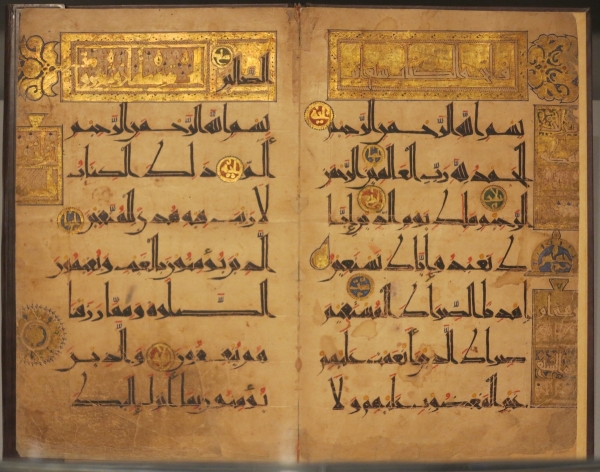 فاتحة الكتاب سبع
بسم الله الرحمن الرحيم
الحمد لله رب العالمين الرحمن
الرحيم ملك يوم الدين إيا
ك نعبد وإياك نستعين
اهدنا الصراط المستقيم
صراط الذين أنعمت عليهم
غير المغضوب عليهم ولا
الضالين
بسم الله الرحمن الرحيم
الم ذلك الكتاب
لا ريب فيه هدى للمتقين
الذين يؤمنون بالغيب ويقيمون
الصلوة ومما رزقنا
هم ينفقون والذين
يؤمنون بما أنزل إليك